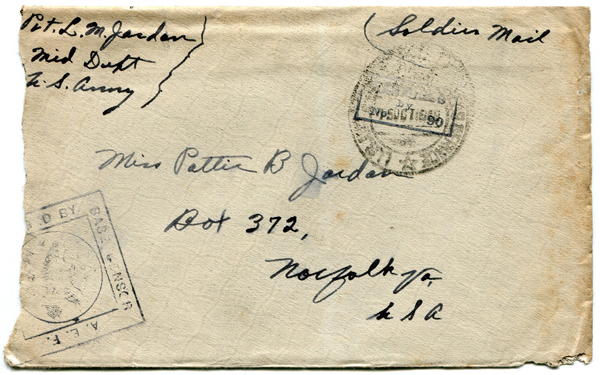 Pvt. L. M. Jordan
Med Dept
U.S. Army
Soldiers Mail
Miss Pattie B Jordan
Box 372,
Norfolk Va,
U S A
BASE CENSOR
A.E.F.
D BY